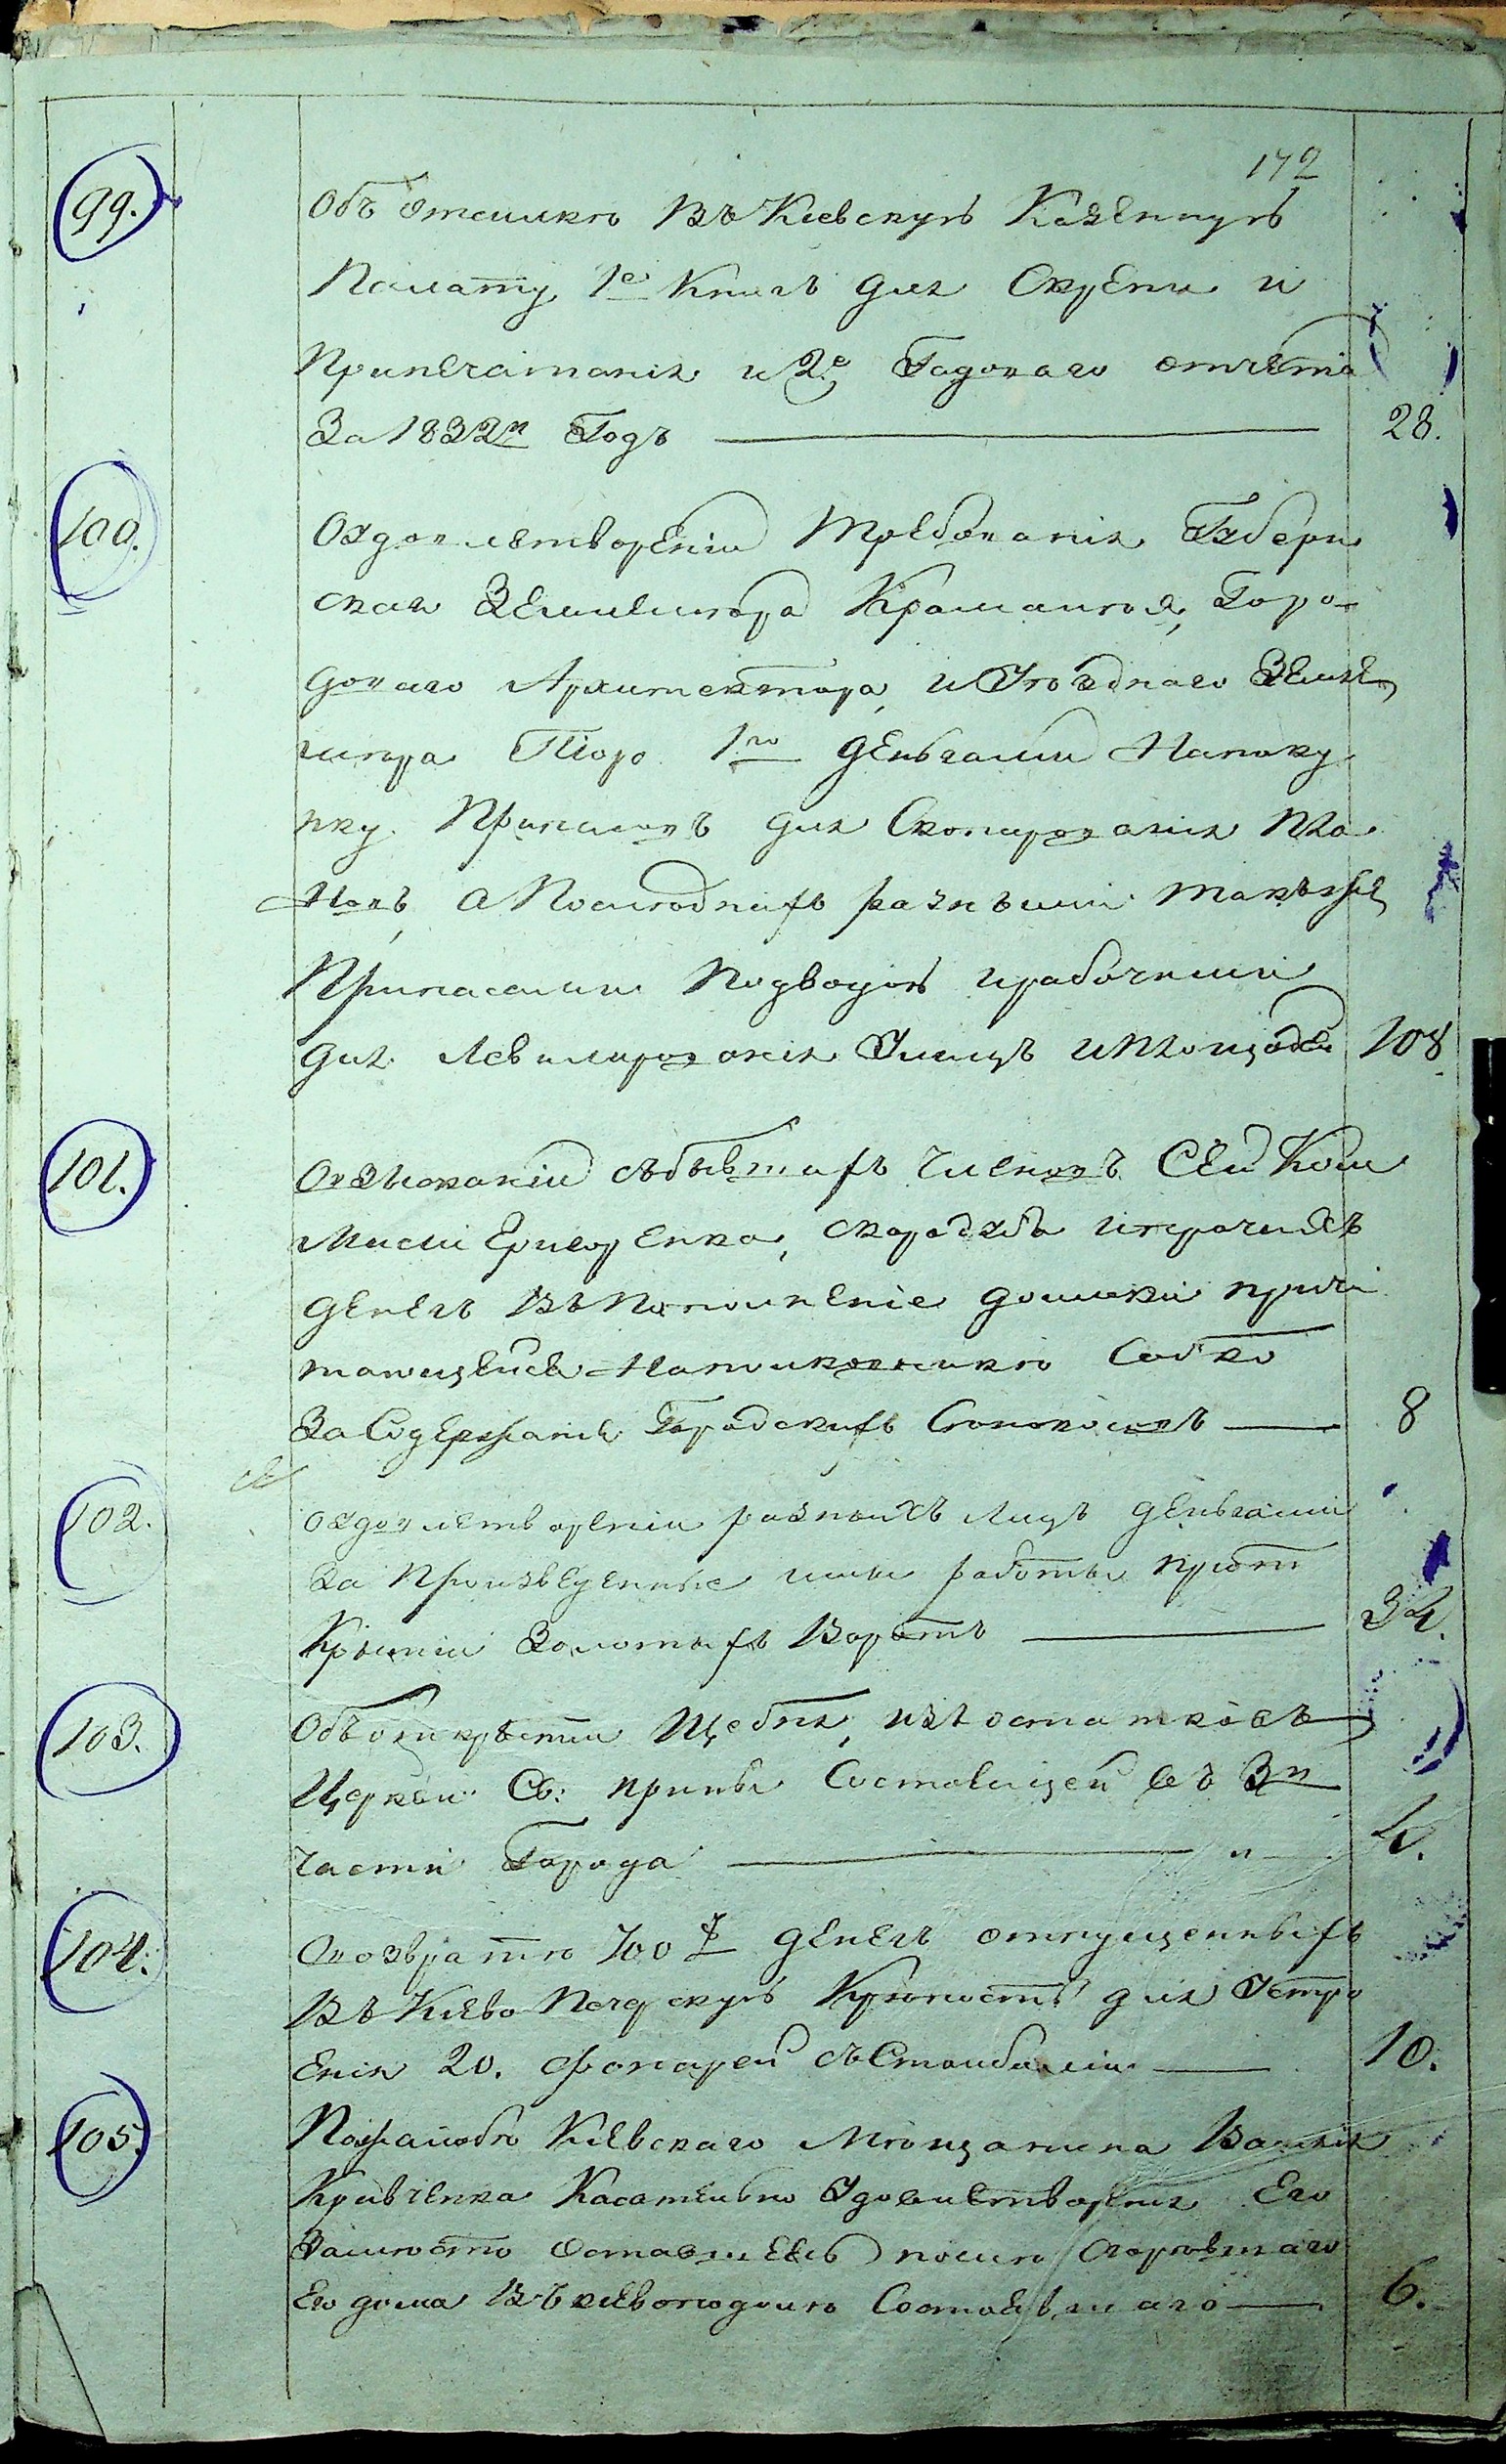 172
99. Объ отсилкѣ Въ Кіевскую Казенную
Палату 1е Книгъ для Скрепи и
Припечатанія и 2е Годоваго отчета
За 1832й Годъ 28.
100. О удовлетвореніи Требованія Губерн
скаго Землемѣра Крамалея, Горо-
доваго Архитектора, и Уѣзднаго Земле
мѣра 1го деньгами На поку
пку Припасовъ для Скопированія Пла
Новъ, а Последнихъ разными такъже
Припасами Подводою и рабочими
для Левилированія Улицъ и Площадей 108
101. О взысканіи съ бывшихъ членовъ Сей Ком
Мисіи Григоренка, и прочихъ
денегъ Въ Пополненіе причи
тающейся На Собко
За Содержаніе Городскихъ Сенокосовъ 8
102. О удовлетвореніи разныхъ Лицъ деньгами
За Произведенные ими работы при от
Крытіи Золотыхъ Воротъ 34.
103. Объ открытіи Щебня, изъ остатковъ
Церкви Св: Ирины Состоящей въ 3й
части Города 4.
104. О возвратѣ 700 р денегъ отпущенныхъ
Въ Кіево Печерскую Крѣпость для Устро
Енія 20. Фонарей съ Столбами 10.
105. По жалобѣ Кіевскаго Мѣщанина Василія
Кривченка Касательно Удовлетворенія Его
За мѣсто оставшеесь после сгоревшаго
Его дома Въ Кіевоподолѣ Состоявшаго 6.